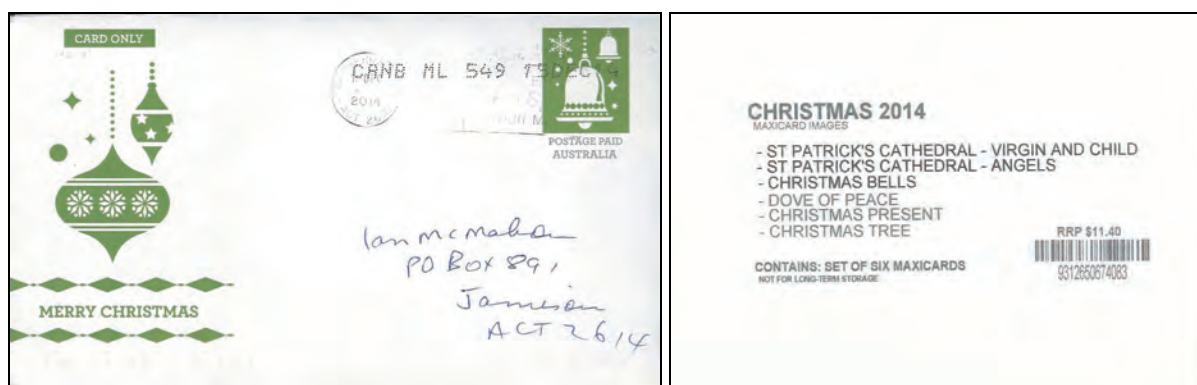 CARD ONLY
CANB ML 549 15DEC14
2014
POSTAGE PAID
AUSTRALIA
Ian McMahon
PO Box 891
Jamison
ACT 2614
MERRY CHRISTMAS
CHRISTMAS 2014
MAXICARD IMAGES
- ST PATRICK'S CATHEDRAL - VIRGIN AND CHILD
- ST PATRICK'S CATHEDRAL - ANGELS
- CHRISTMAS BELLS
- DOVE OF PEACE
- CHRISTMAS PRESENT
- CHRISTMAS TREE
RRP $11.40
9312650674083
CONTAINS: SET OF SIX MAXICARDS
NOT FOR LONG-TERM STORAGE